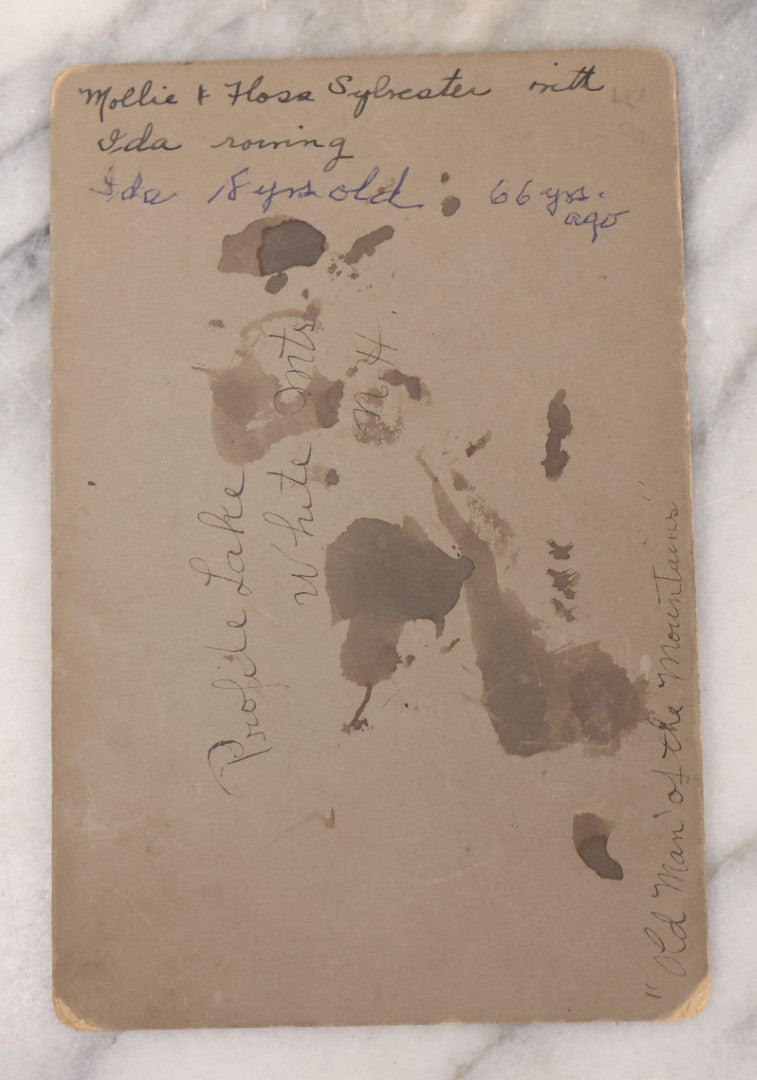 Mollie & Floss Sylvester with
Ida rowing
Ida 18 yrs old. 66 yrs.
ago
Profile Lake
White Mts
N.H.
"Old Man of the Mountains"